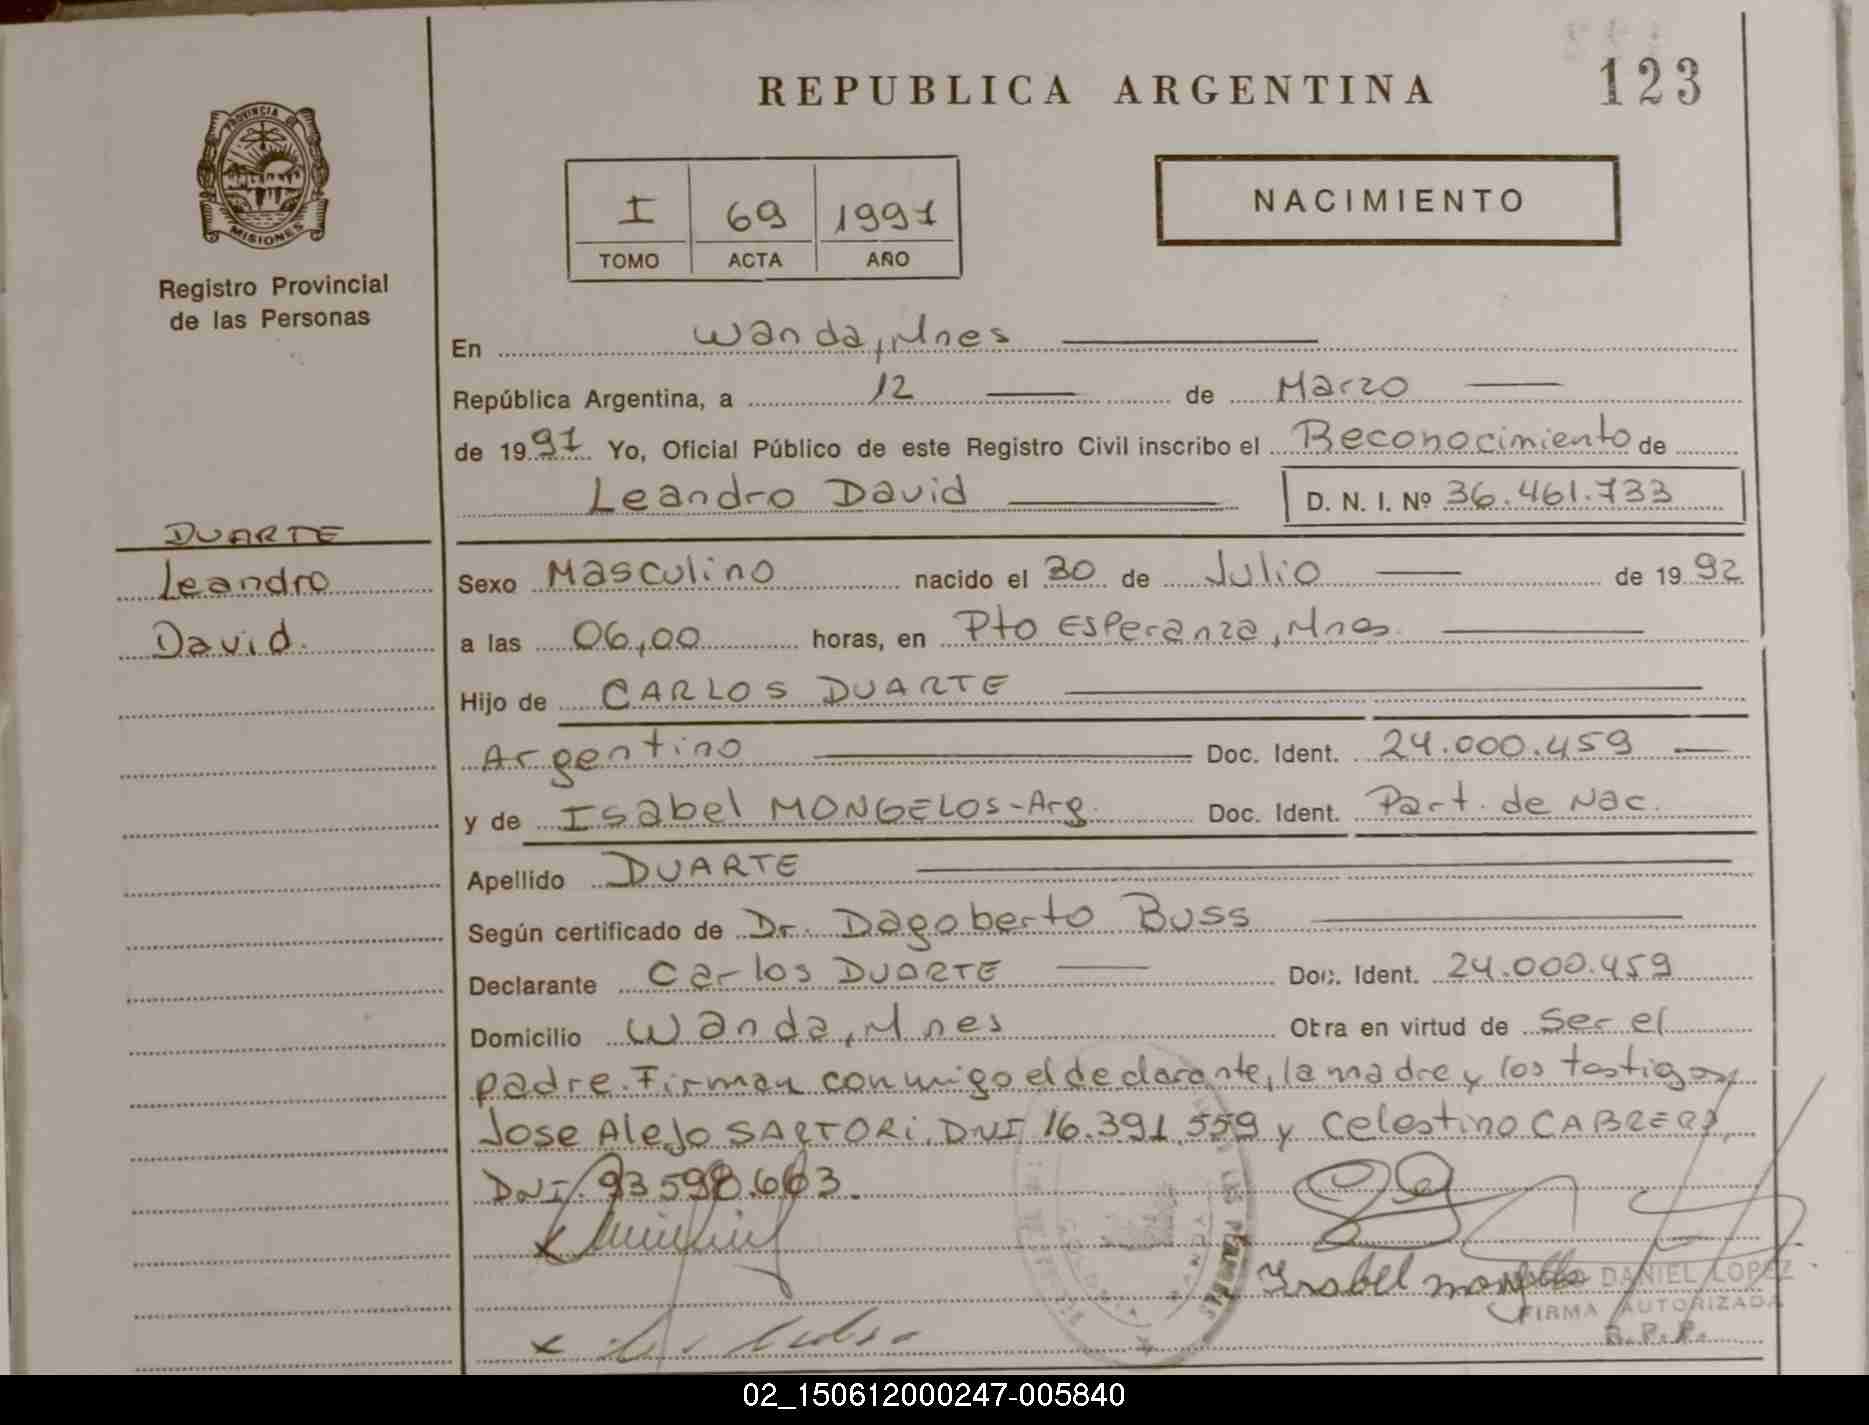 REPUBLICA ARGENTINA
123
PROVINCIA DE
MISIONES
Registro Provincial
de las Personas
I 69 1991
TOMO ACTA AÑO
NACIMIENTO
En Wanda, Mnes
República Argentina, a 12 de Marzo
de 1991 Yo, Oficial Público de este Registro Civil inscribo el Reconocimiento de
Leandro David D. N. I. Nº 36.461.733
DUARTE
Leandro
David.
Sexo Masculino nacido el 30 de Julio de 1992
a las 06,00 horas, en Pto Esperanza, Mnes.
Hijo de CARLOS DUARTE
Argentino Doc. Ident. 24.000.459
y de Isabel MONGELOS-Arg. Doc. Ident. Part. de Nac.
Apellido DUARTE
Según certificado de Dr. Dagoberto Buss
Declarante Carlos DUARTE Doc. Ident. 24.000.459
Domicilio Wanda, Mnes Obra en virtud de Ser el
padre. Firman conmigo el declarante, la madre y los testigos,
Jose Alejo SARTORi, DNI 16.391.559 y Celestino CABRERA,
DNI. 93.598.663.
Isabel
DANIEL LOPEZ
FIRMA AUTORIZADA
R.P.P.
02_150612000247-005840